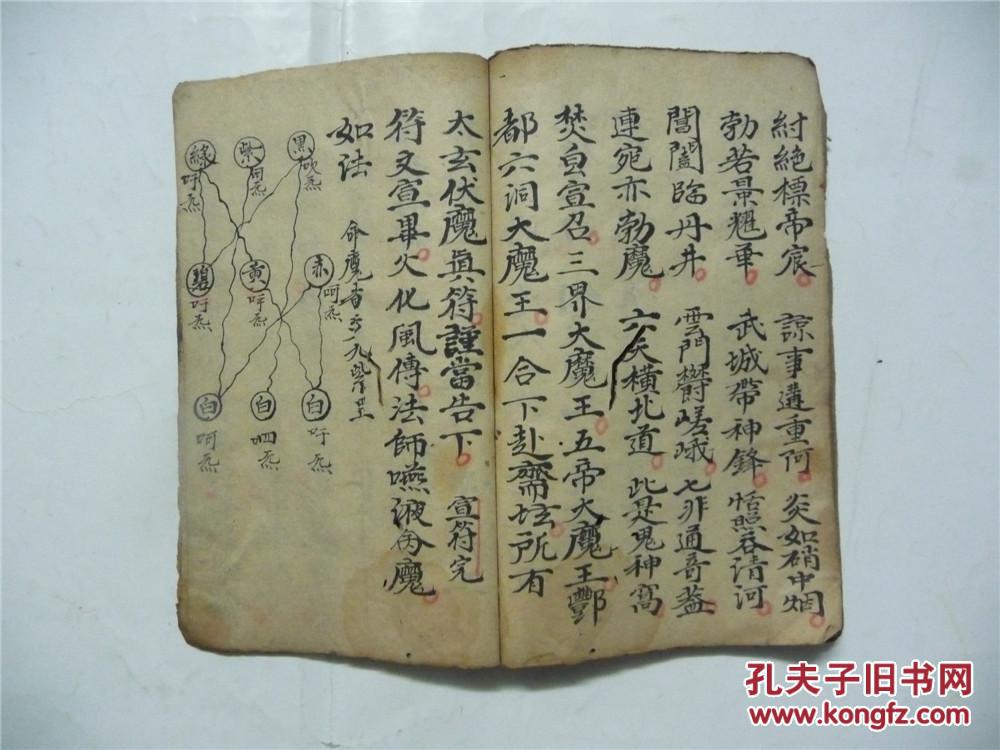 紂絕標帝宸 諒事遘重阿 炎如硝中烟
勃若景耀華 武城帶神鋒 恬照吞清河
閶闔臨丹井 雲門鬱嵯峨 七非通奇蓋
連宛亦勃魔 六天橫北道 此是鬼神窩
焚自宣召三界大魔王五帝大魔王酆
都六洞大魔王一合下赴齋坛所有
太玄伏魔真符謹當告下 宣符完
符文宣畢火化風傳法師嚥液命魔
如法
命魔
黑 炁
紫 炁
綠 吁炁
赤 呵炁
黃 吽炁
碧 吁炁
白 吁炁
白 呬炁
白 呵炁
孔夫子旧书网
www.kongfz.com